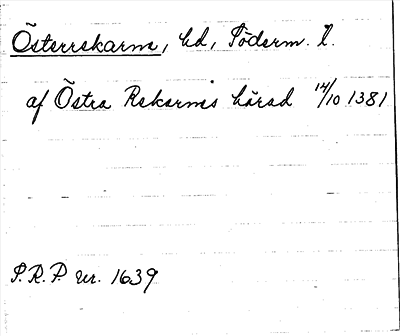 Österrekarne, hd, Söderm. l.
af Östra Rekarnis härad 14/10 1381
S.R.P. nr. 1639